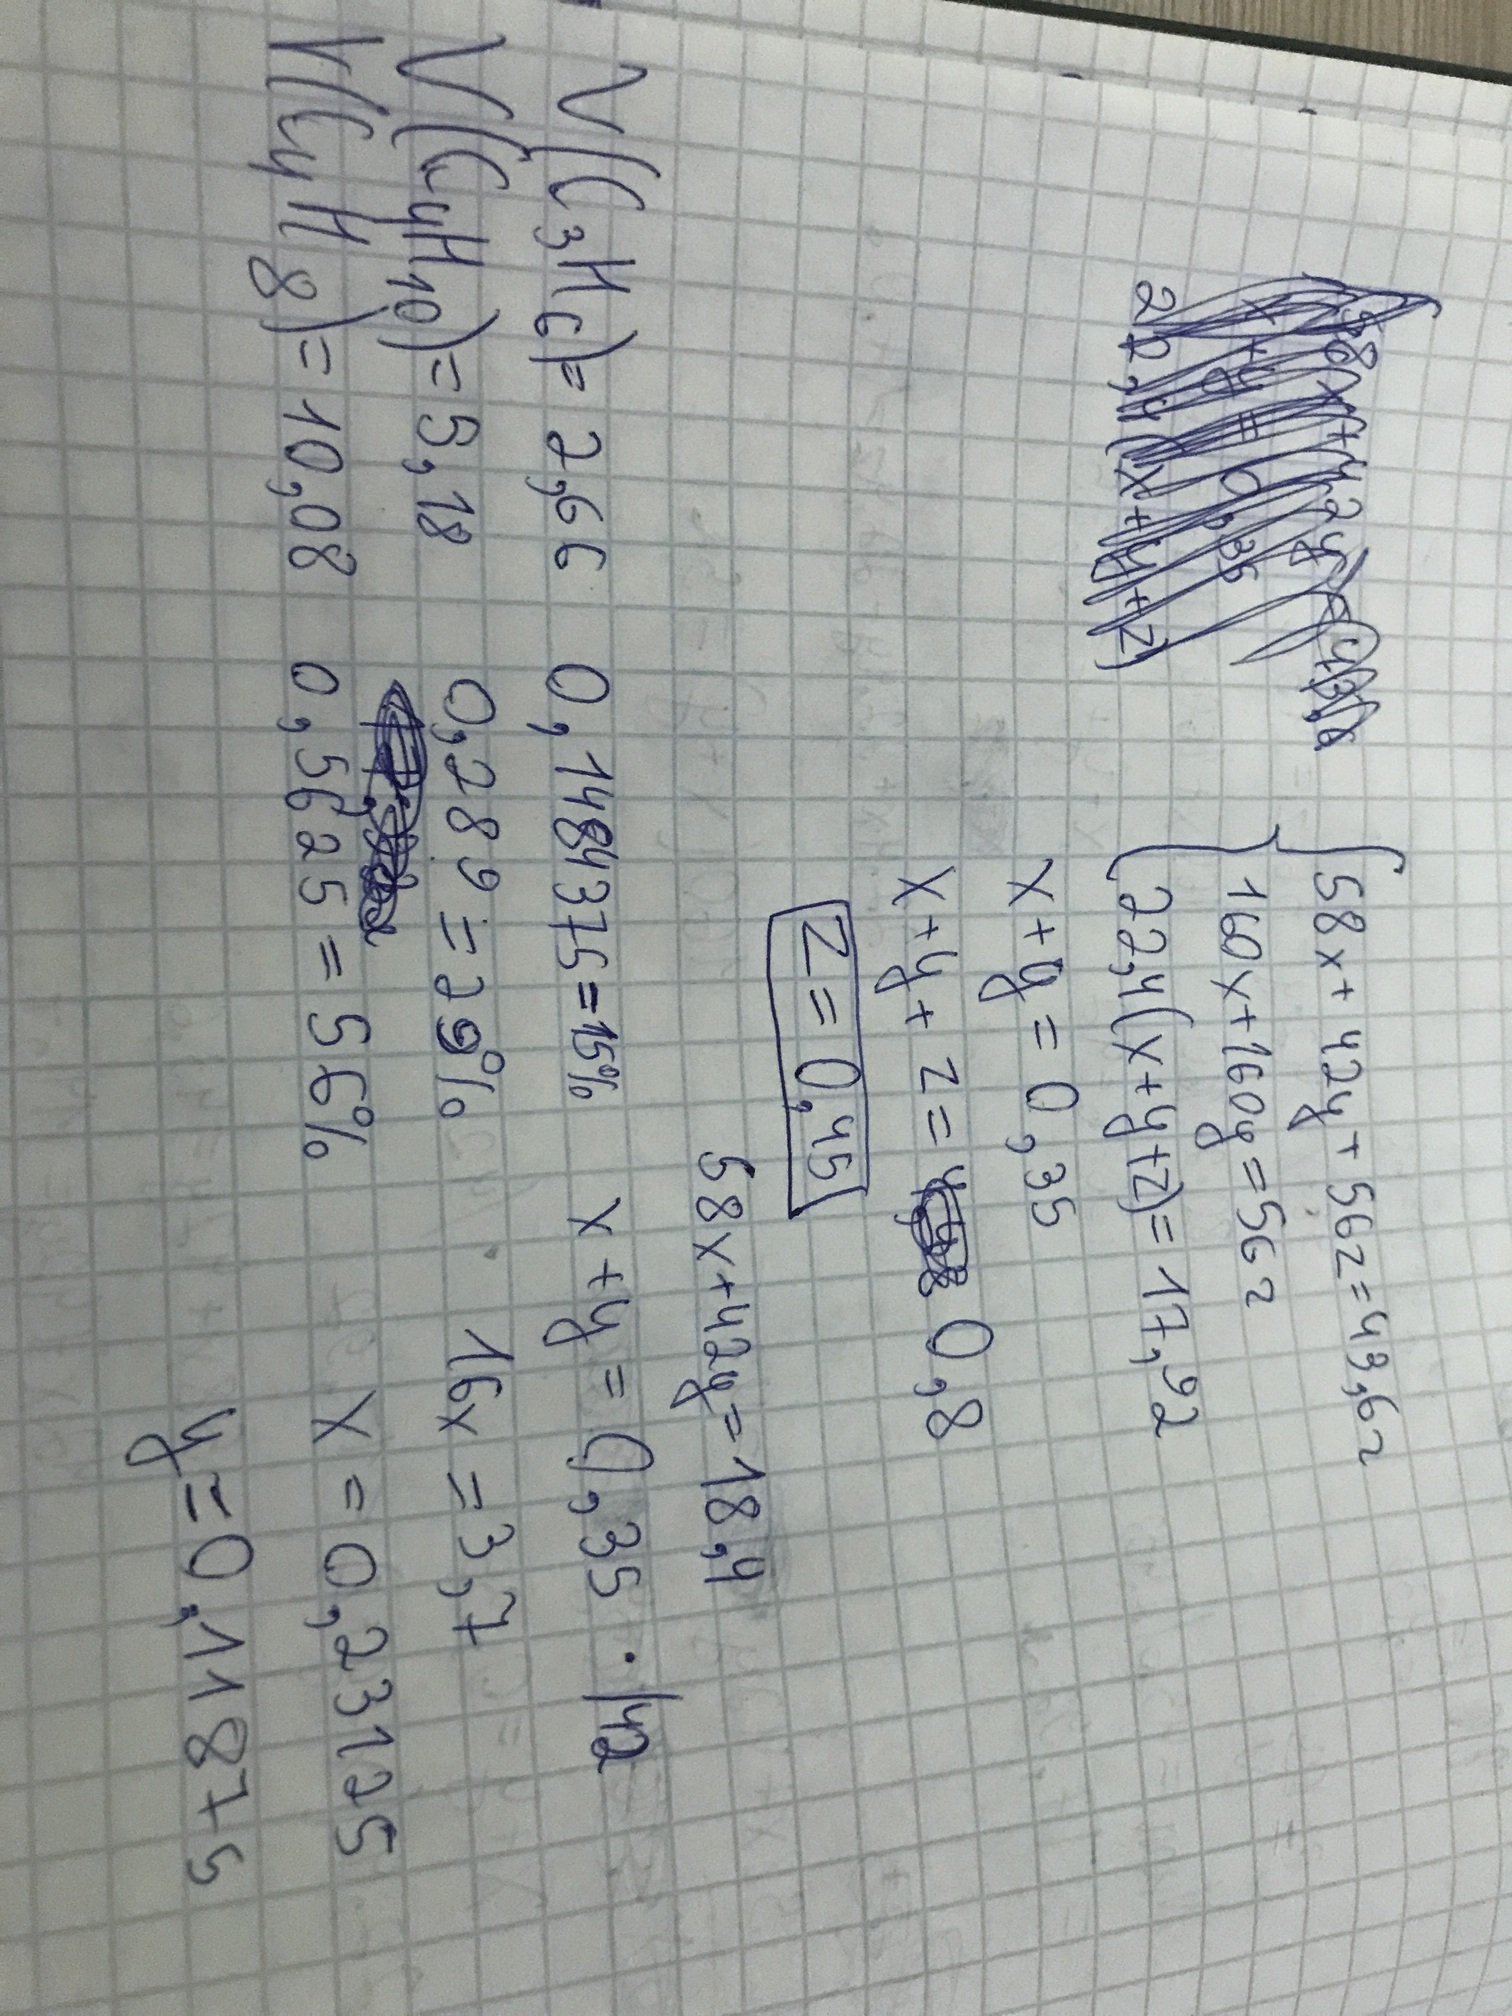 58x+42y+56z=43,6г
160x+160y=56г
22,4(x+y+z)=17,92
x+y=0,35
x+y+z= 0,8
z=0,45
58x+42y=18,4
x+y=0,35 ·|42
16x=3,7
x=0,23125
y=0,11875
V(C3H6)=2,66 0,1484375=15%
V(C4H10)=5,18 0,289=29%
V(C4H8)=10,08 0,5625=56%